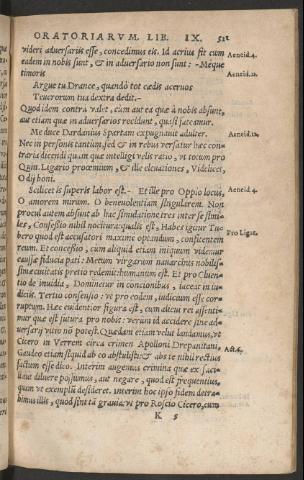 ORATORIARVM. LIB. IX. 521
videri aduersarijs esse, concedimus eis. Id acrius fit cum
eadem in nobis sunt, & in aduersario non sunt: -Méque
Aeneid. 4.
timoris
Aeneid. 11.
Argue tu Drance, quandò tot cædis aceruos
Teucrorum tua dextra dedit.-
Quod idem contra valet, cum aut ea quæ à nobis absunt,
aut etiam quæ in aduersarios recidunt, quasi fateamur.
Me duce Dardanius Spartam expugnauit adulter.
Aeneid. 10.
Nec in personis tantùm, sed & in rebus versatur hæc con-
traria dicendi quàm quæ intelligi velis ratio, vt totum pro
Quin. Ligario proœmium, & illæ eleuationes, Videlicet,
O dij boni.
Scilicet is superis labor est.- Et ille pro Oppio locus,
Aeneid. 4
O amorem mirum. O beneuolentiam singularem. Non
procul autem absunt ab hac simulatione tres inter se simi-
les, Confessio nihil nocitura: qualis est, Habes igitur Tu-
bero quod est accusatori maximè optandum, confitentem
Pro Ligar.
reum. Et concessio, cum aliquid etiam iniquum videmur
causæ fiducia pati: Metum virgarum nauarchus nobilis-
simæ ciuitatis pretio redemit: humanum est. Et pro Cluen-
tio de inuidia, Dominetur in concionibus, iaceat in iu-
dicijs. Tertio consensio: vt pro eodem, iudicium esse cor-
ruptum. Hæc euidentior figura est, cum alicui rei assenti-
mur quæ est futura pro nobis: verùm id accidere sine ad-
uersarij vitio nō potest. Quædam etiam velut laudamus, vt
Cicero in Verrem circa crimen Apollonij Drepanitani,
Gaudeo etiam siquid ab eo abstulisti: & abs te nihil rectius
Act. 6.
factum esse dico. Interim augemus crimina quæ ex faci-
li aut diluere possumus, aut negare, quod est frequentius,
quàm vt exemplū desideret. Interim hoc ipso fidem detra-
himus illis, quod sint tā grauia: vt pro Roscio Cicero, cum
K 5